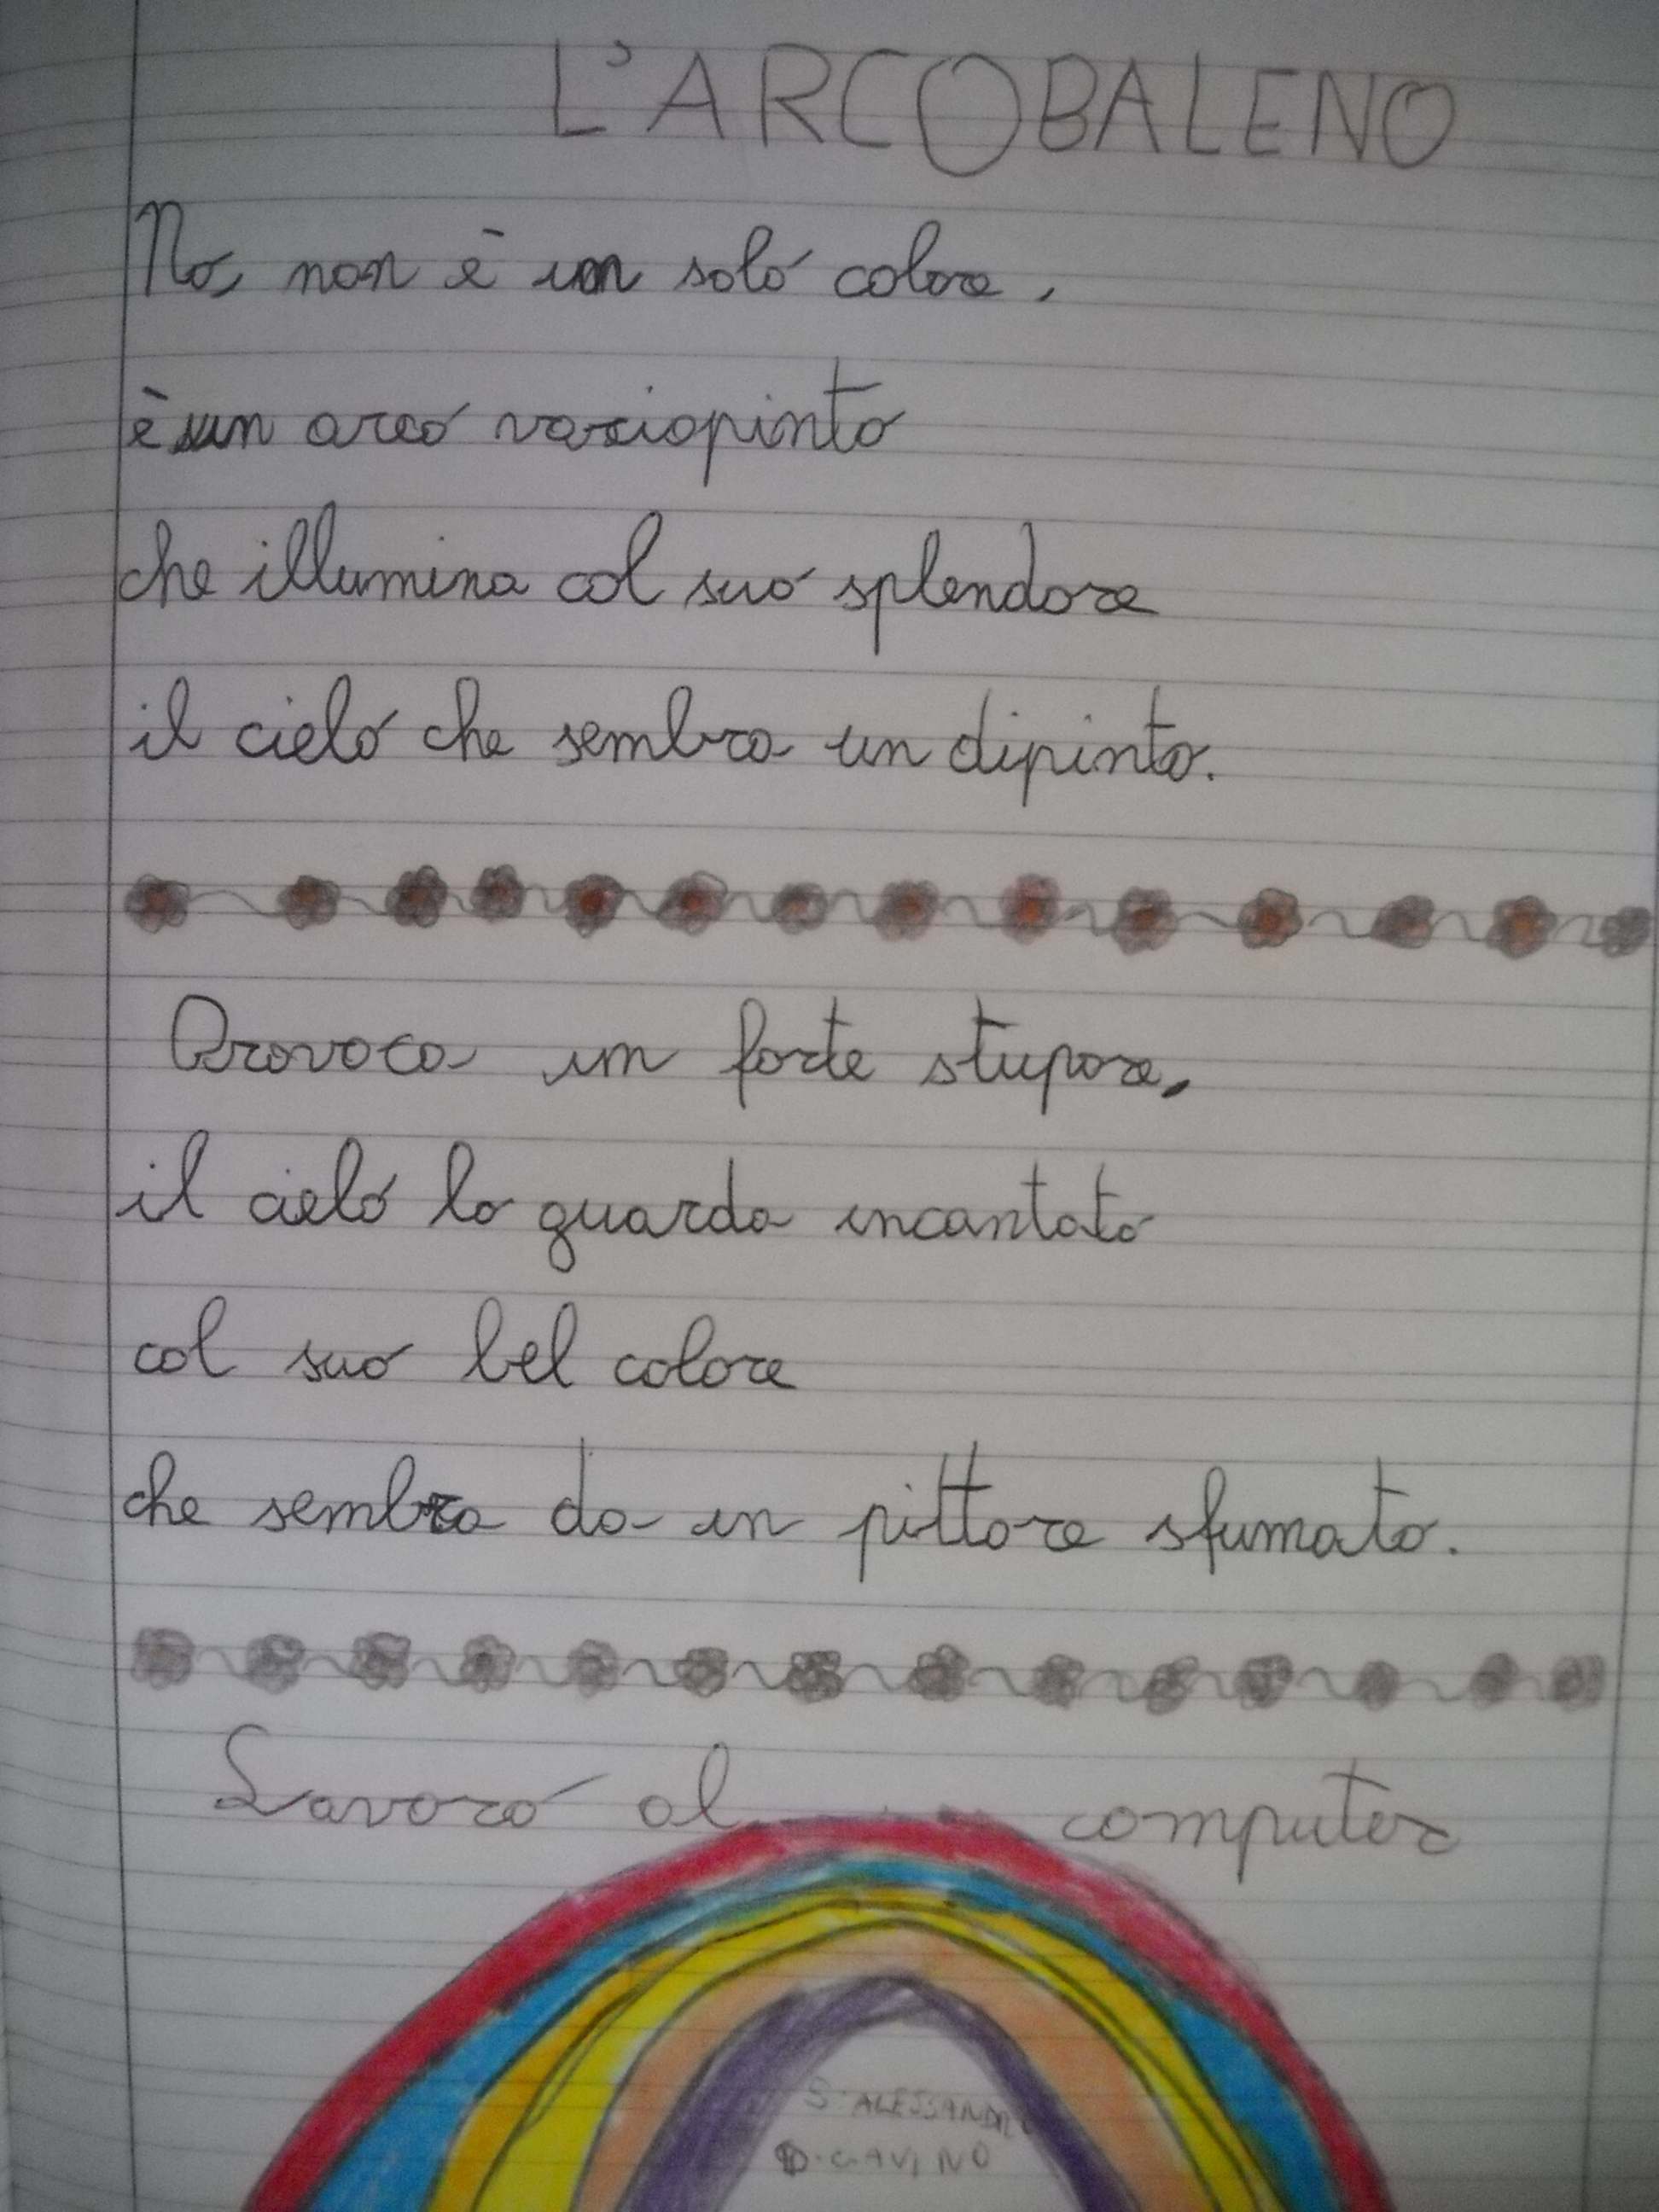 L'ARCOBALENO
No, non è un solo colore,
è un arco variopinto
che illumina col suo splendore
il cielo che sembra un dipinto.
Provoca un forte stupore,
il cielo lo guarda incantato
col suo bel colore
che sembra da un pittore sfumato.
Lavoro al computer
S. ALESSANDRO
D. GAVINO